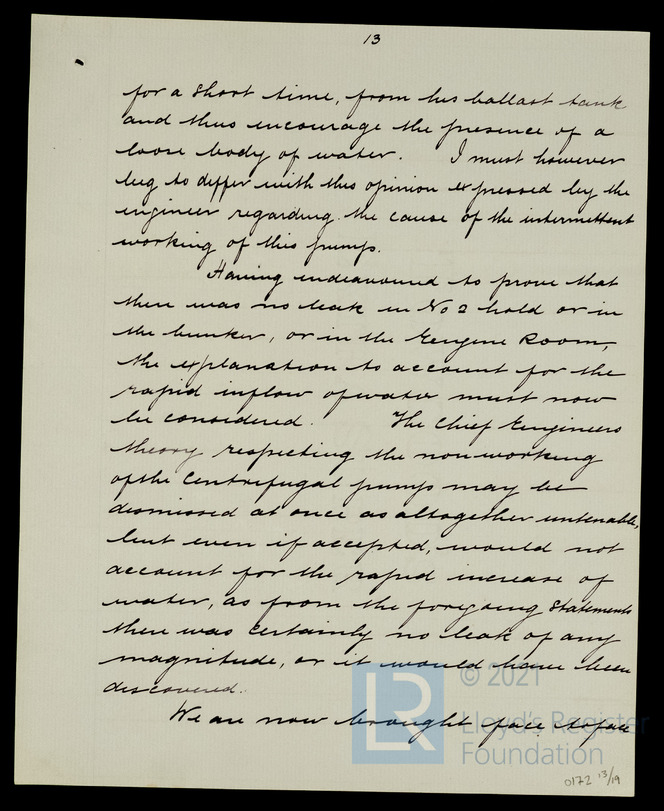 13
for a short time, from his ballast tank
and thus encourage the presence of a
loose body of water. I must however
beg to differ with this opinion expressed by the
engineer regarding the cause of the intermittent
working of this pump.
Having endeavoured to prove that
there was no leak in No 2 hold or in
the bunker, or in the Engine Room,
the explanation to account for the
rapid inflow of water must now
be considered. The Chief Engineers
theory respecting the non working
of the Centrifugal pump may be
dismissed at once as altogether untenable,
but even if accepted, would not
account for the rapid increase of
water, as from the foregoing statements
there was certainly no leak of any
magnitude, or it would have been
discovered.
We are now brought face to face
LR
© 2021
Lloyd's Register
Foundation
0172 13/19